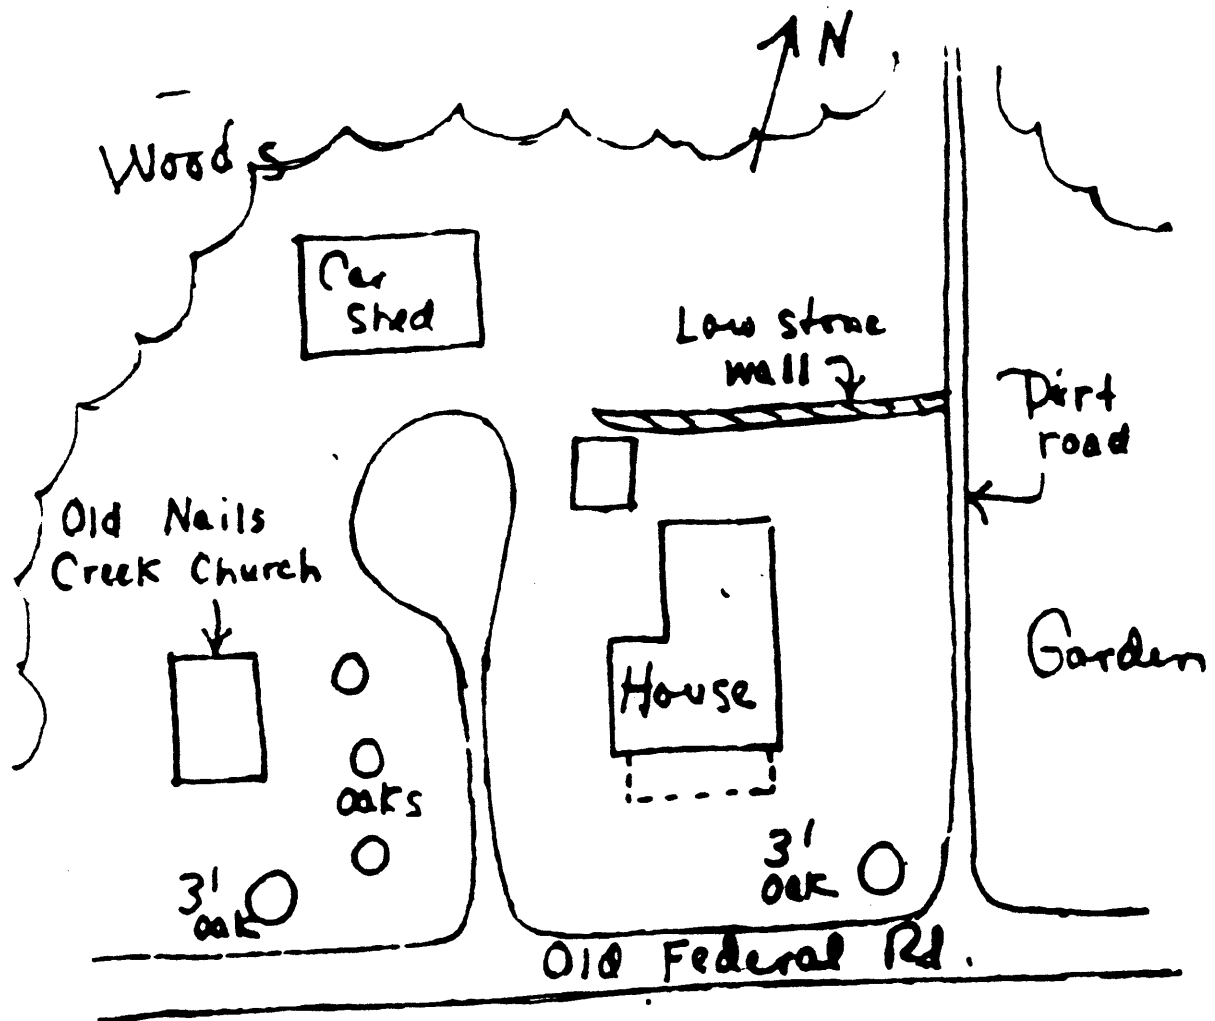 N
Woods
Car
shed
Low stone
wall
Dirt
road
Old Nails
Creek Church
Garden
House
oaks
3'
oak
3'
oak
Old Federal Rd.